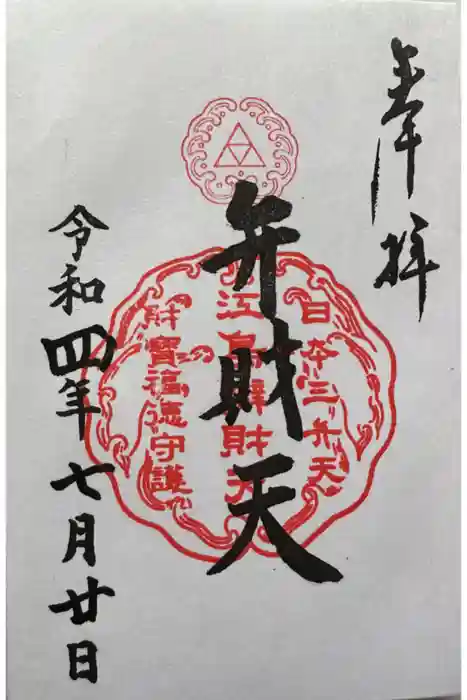 奉拝
日本三弁天
江島辨財天
財寶福徳守護
弁財天
令和四年七月廿日